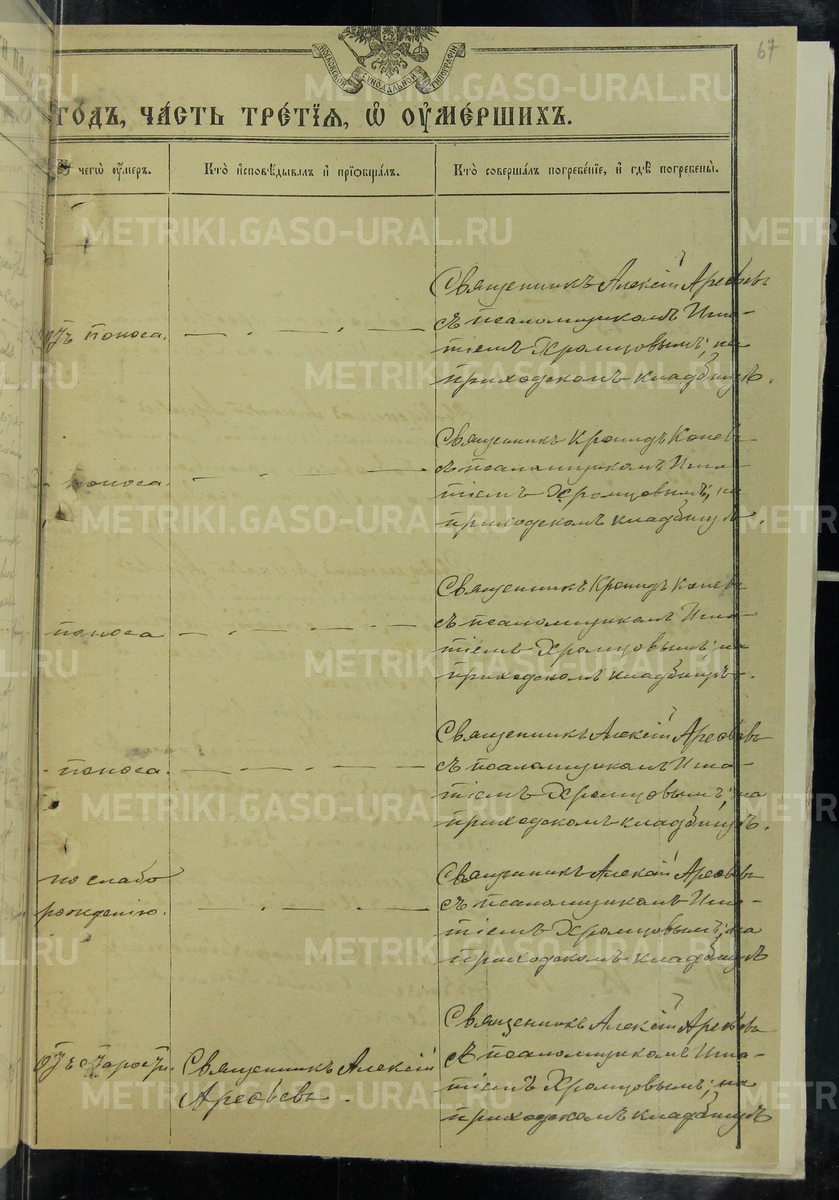 67
МОСКОВСКОЙ СУНОДАЛЬНОЙ ТИПОГРАФІИ
ГОДЪ, ЧАСТЬ ТРЕТІЯ, Ѡ ОУМЕРШИХЪ.
чегѡ оумеръ.
Кто исповѣдывалъ и пріобщалъ.
Кто совершалъ погребеніе, и гдѣ погребены.
отъ поноса.
Священникъ Алексій
съ псаломщикомъ Игна-
тіемъ Хромцовымъ; на
приходскомъ кладбищѣ.
поноса.
Священникъ Кронидъ
съ псаломщикомъ Игна-
тіемъ Хромцовымъ; на
приходскомъ кладбищѣ.
поноса
Священникъ Кронидъ
съ псаломщикомъ Игна-
тіемъ Хромцовымъ; на
приходскомъ кладбищѣ.
поноса.
Священникъ Алексій
съ псаломщикомъ Игна-
тіемъ Хромцовымъ; на
приходскомъ кладбищѣ.
по слабо
рожденію.
Священникъ Алексій
съ псаломщикомъ Игна-
тіемъ Хромцовымъ; на
приходскомъ кладбищѣ
отъ старости.
Священникъ Алексій
Священникъ Алексій
съ псаломщикомъ Игна-
тіемъ Хромцовымъ; на
приходскомъ кладбищѣ
METRIKI.GASO-URAL.RU